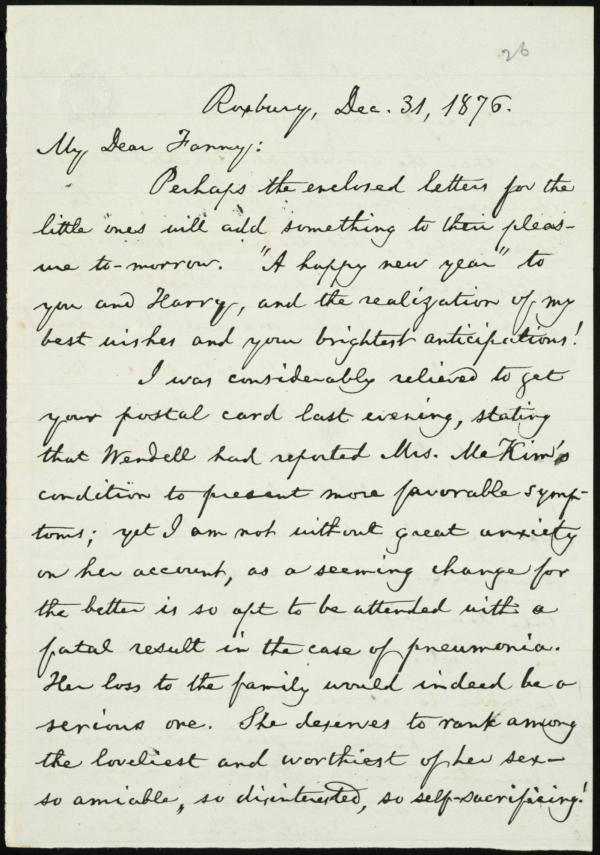 26
Roxbury, Dec. 31, 1876.
My Dear Fanny:
Perhaps the enclosed letters for the
little ones will add something to their pleas-
ure to-morrow. "A happy new year" to
you and Harry, and the realization of my
best wishes and your brightest anticipations!
I was considerably relieved to get
your postal card last evening, stating
that Wendell had reported Mrs. McKim's
condition to present more favorable symp-
toms; yet I am not without great anxiety
on her account, as a seeming change for
the better is so apt to be attended with a
fatal result in the case of pneumonia.
Her loss to the family would indeed be a
serious one. She deserves to rank among
the loveliest and worthiest of her sex—
so amiable, so disinterested, so self-sacrificing!